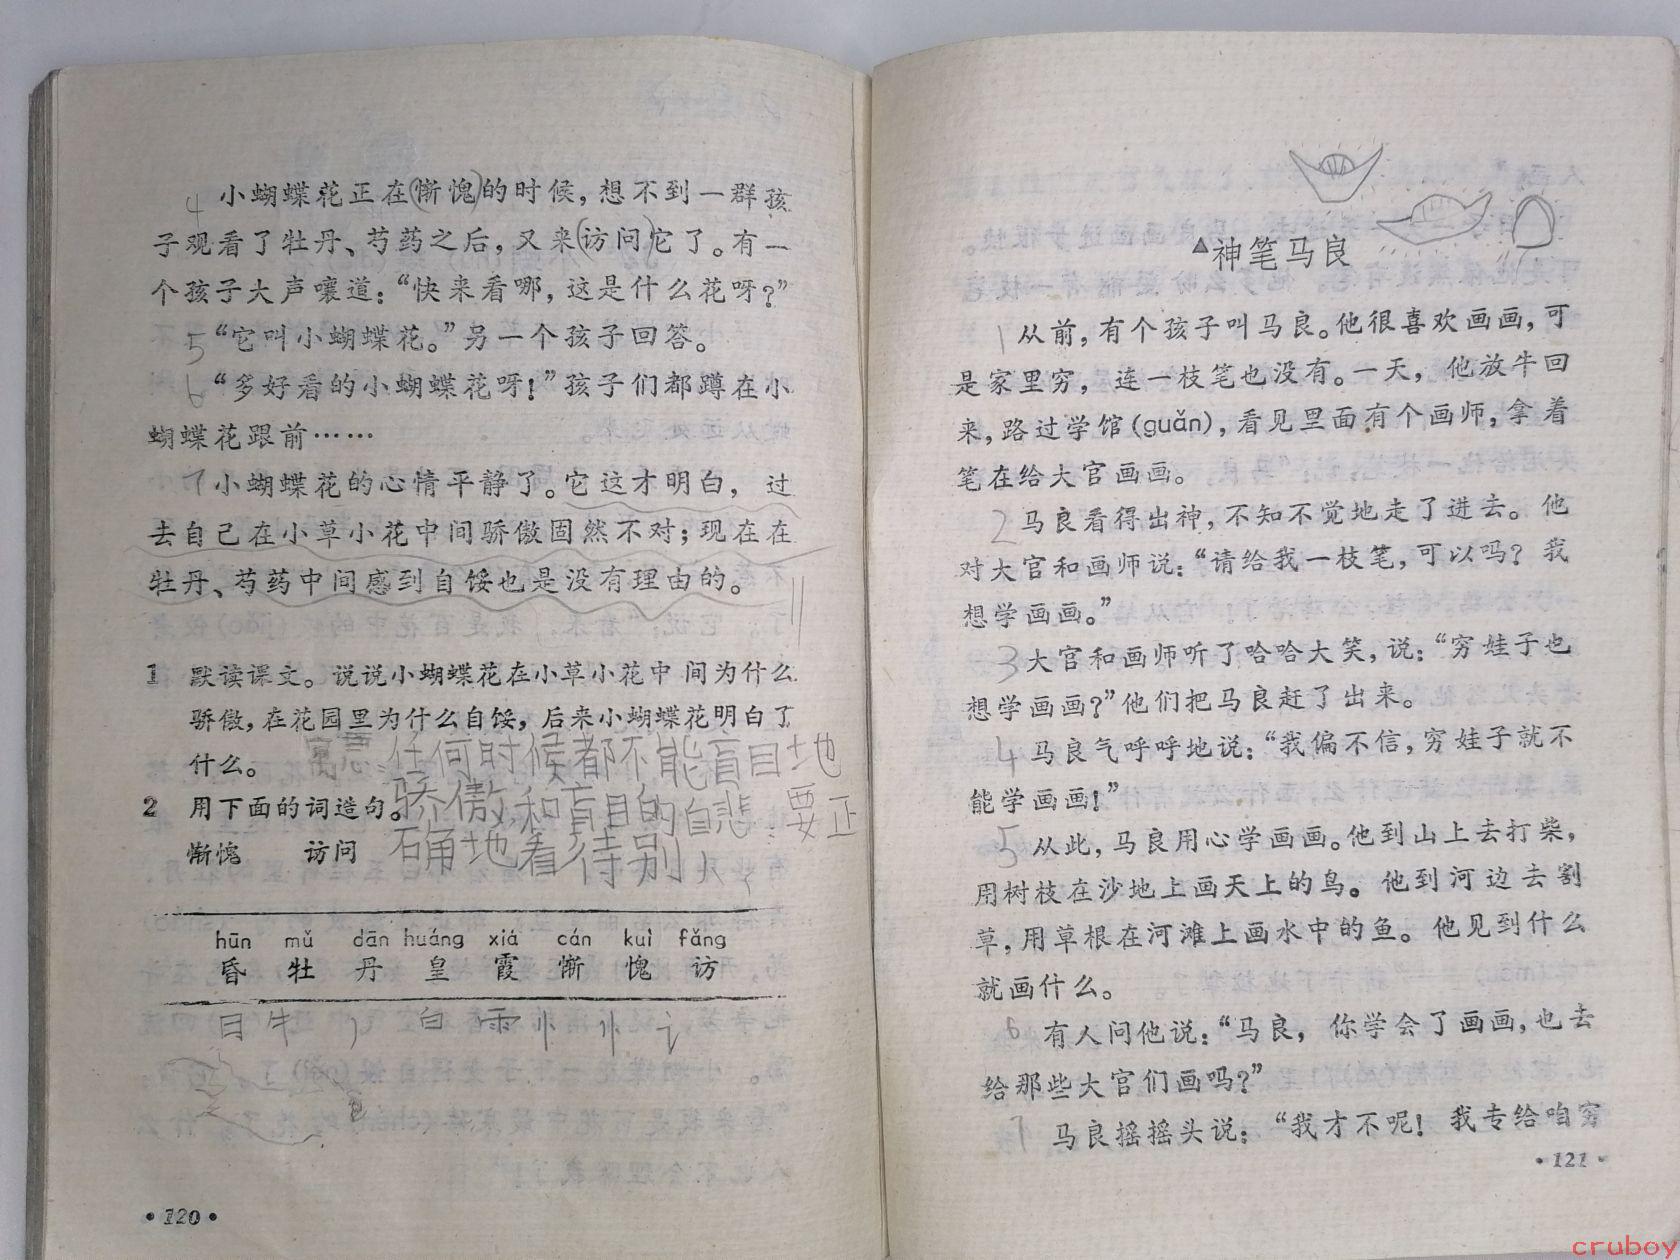 4 小蝴蝶花正在(惭愧)的时候，想不到一群孩
子观看了牡丹、芍药之后，又来(访问)它了。有一
个孩子大声嚷道：“快来看哪，这是什么花呀？”
5 “它叫小蝴蝶花。”另一个孩子回答。
6 “多好看的小蝴蝶花呀！”孩子们都蹲在小
蝴蝶花跟前……
7 小蝴蝶花的心情平静了。它这才明白，过
去自己在小草小花中间骄傲固然不对；现在在
牡丹、芍药中间感到自馁也是没有理由的。
1 默读课文。说说小蝴蝶花在小草小花中间为什么
骄傲，在花园里为什么自馁，后来小蝴蝶花明白了
什么。
寓意 任何时候都不能盲目地
骄傲和盲目的自悲，要正
确地看待别人
2 用下面的词造句。
惭愧 访问
hūn mǔ dān huáng xiá cán kuì fǎng
昏 牡 丹 皇 霞 惭 愧 访
日 牛 丿 白 雨 忄 忄 讠
·120·
▲神笔马良
1 从前，有个孩子叫马良。他很喜欢画画，可
是家里穷，连一枝笔也没有。一天，他放牛回
来，路过学馆(guǎn)，看见里面有个画师，拿着
笔在给大官画画。
2 马良看得出神，不知不觉地走了进去。他
对大官和画师说：“请给我一枝笔，可以吗？我
想学画画。”
3 大官和画师听了哈哈大笑，说：“穷娃子也
想学画画？”他们把马良赶了出来。
4 马良气呼呼地说：“我偏不信，穷娃子就不
能学画画！”
5 从此，马良用心学画画。他到山上去打柴，
用树枝在沙地上画天上的鸟。他到河边去割
草，用草根在河滩上画水中的鱼。他见到什么
就画什么。
6 有人问他说：“马良，你学会了画画，也去
给那些大官们画吗？”
7 马良摇摇头说：“我才不呢！我专给咱穷
·121·
cruboy